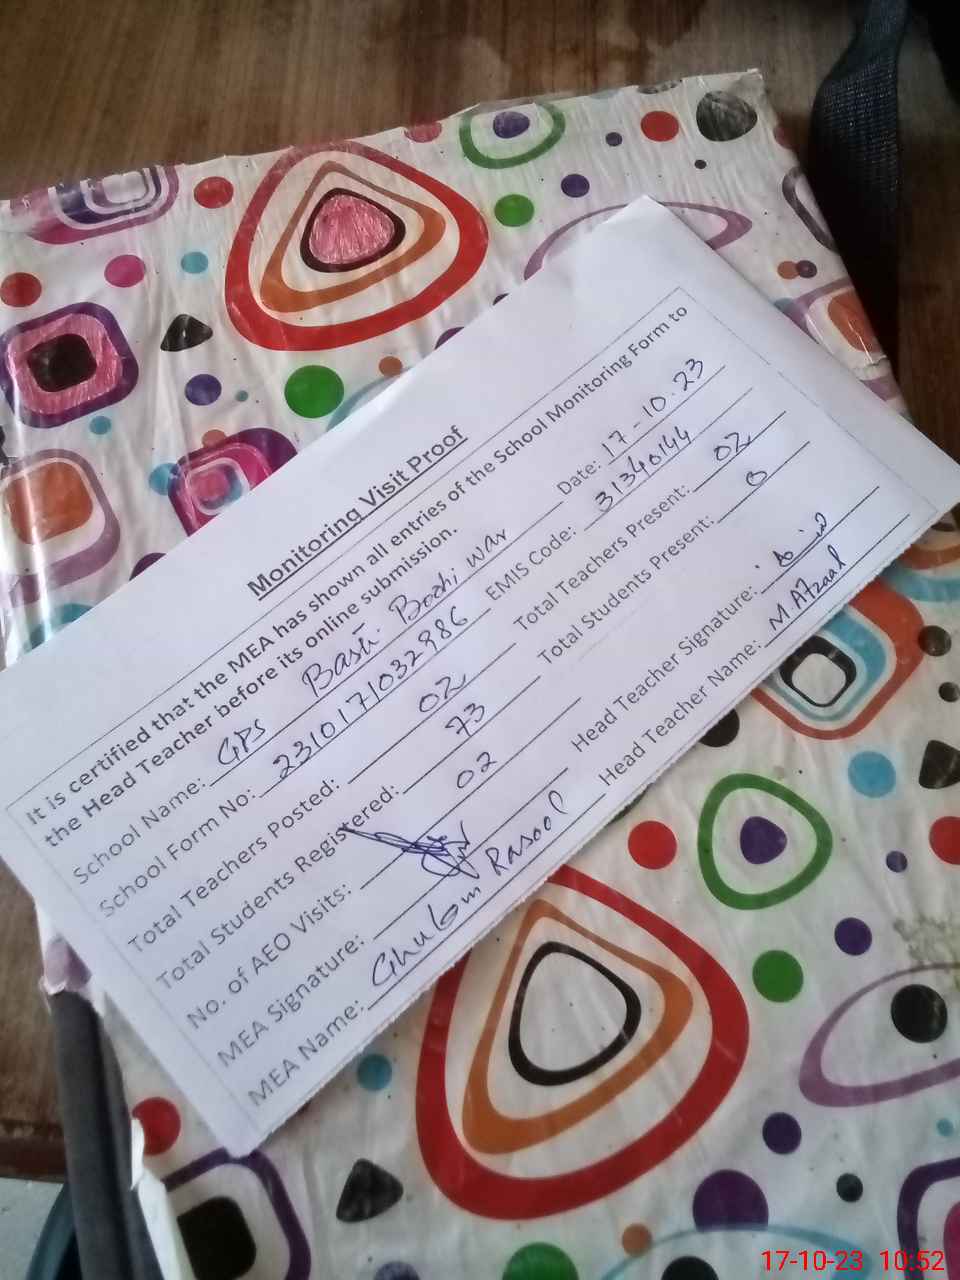 Monitoring Visit Proof
It is certified that the MEA has shown all entries of the School Monitoring Form to
the Head Teacher before its online submission.
School Name: GPS Basti Bochi war Date: 17-10.23
School Form No: 2310171032986 EMIS Code: 31340144
Total Teachers Posted: 02 Total Teachers Present: 02
Total Students Registered: 73 Total Students Present: 0
No. of AEO Visits: 02
MEA Signature: Head Teacher Signature:
MEA Name: Ghulam Rasool Head Teacher Name: M Afzaal
17-10-23 10:52